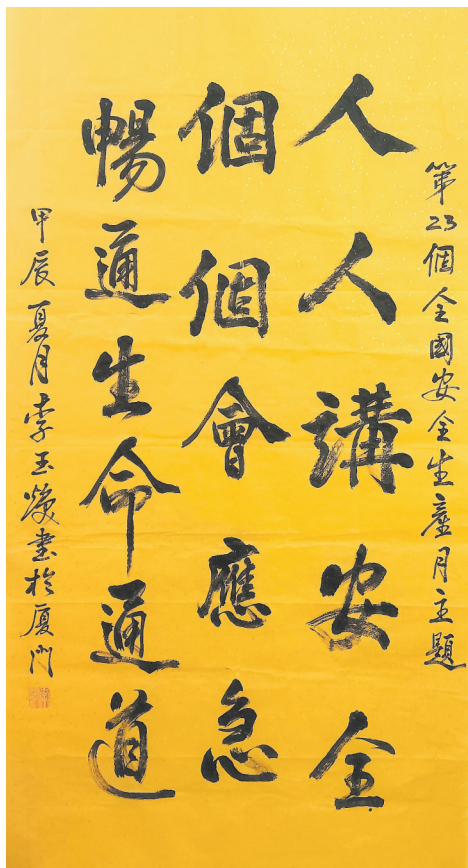 第23個全國安全生產月主題
人人講安全
個個會應急
暢通生命通道
甲辰夏月李玉燮書於廈門